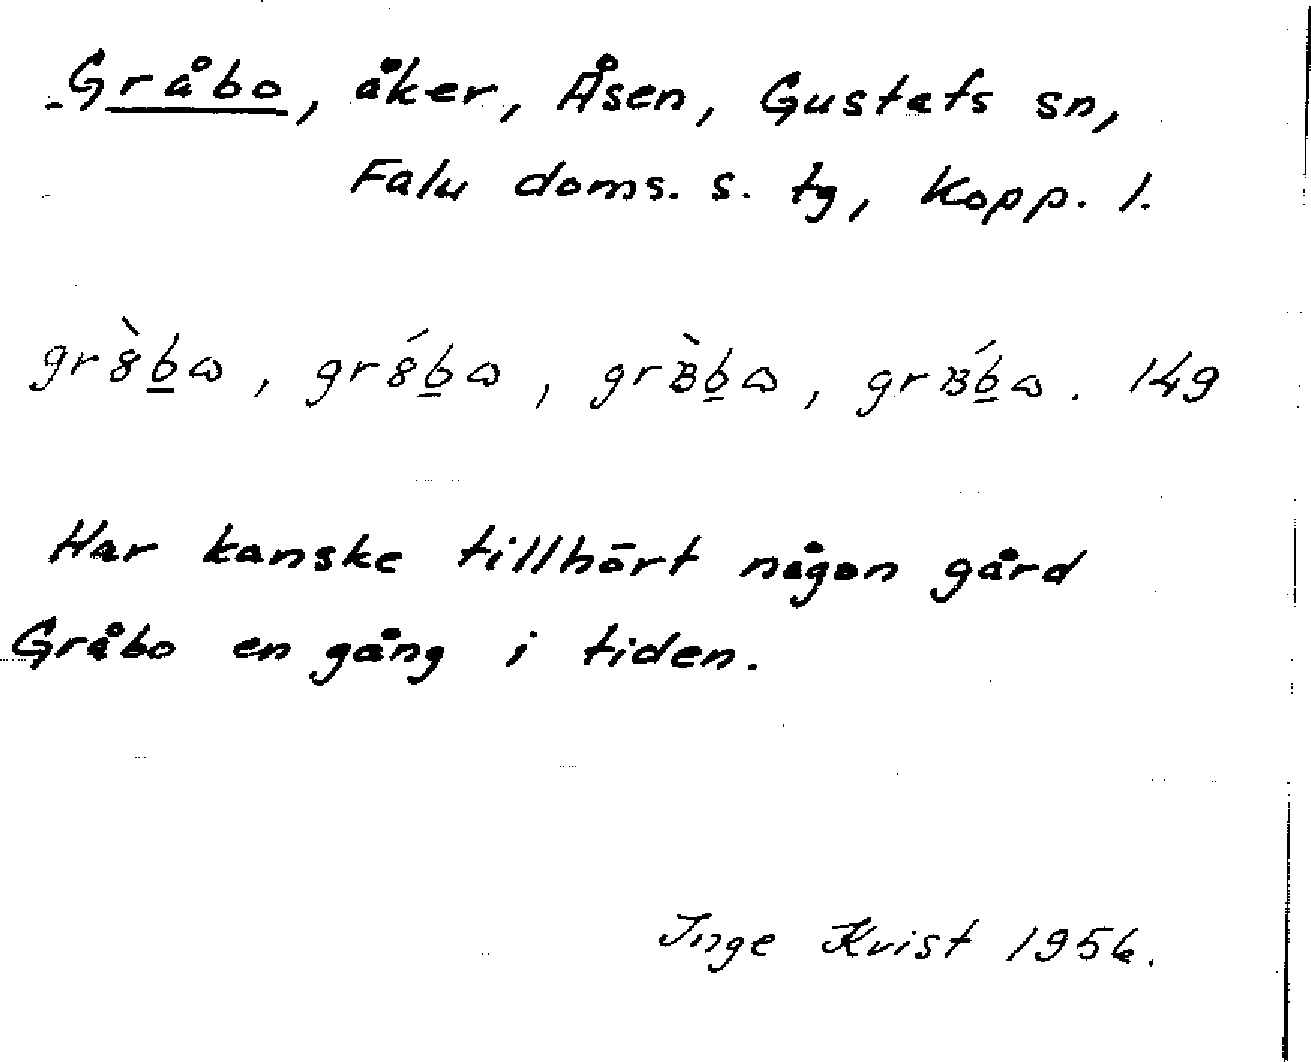 Gråbo, åker, Åsen, Gustafs sn,
Falu doms. s. tg, Kopp. l.
149
Har kanske tillhört någon gård
Gråbo en gång i tiden.
Inge Kvist 1956.